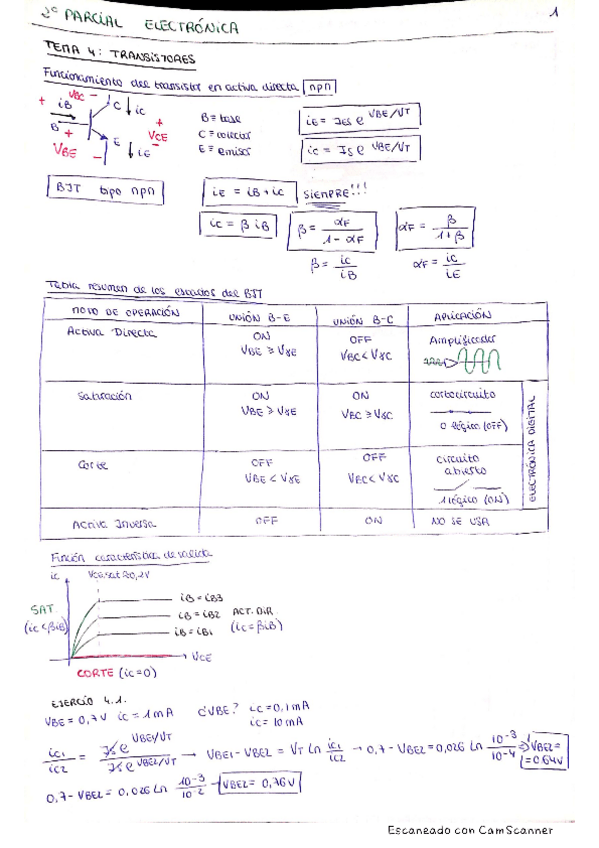 2º PARCIAL ELECTRÓNICA
1
TEMA 4: TRANSISTORES
Funcionamiento del transistor en activa directa npn
+ iB VBC - C iC
B + VBE - E iE + VCE -
B ≡ base
C ≡ colector
E ≡ emisor
iE = IES e^VBE/VT
iC = IS e^VBE/VT
BJT tipo npn
iE = iB + iC SIEMPRE!!!
iC = β iB
β = αF / 1 - αF
αF = β / 1 + β
β = iC / iB
αF = iC / iE
Tabla resumen de los estados del BJT
MODO DE OPERACIÓN UNIÓN B-E UNIÓN B-C APLICACIÓN
Activa Directa ON VBE ≥ VγE OFF VBC < VγC Amplificador
Saturación ON VBE ≥ VγE ON VBC ≥ VγC cortocircuito 0 lógico (OFF)
Corte OFF VBE < VγE OFF VBC < VγC circuito abierto 1 lógico (ON)
ELECTRÓNICA DIGITAL
Activa Inversa OFF ON NO SE USA
Función característica de salida
iC VCEsat ≈ 0,2V
SAT. (iC < βiB)
iB = iB3
iB = iB2
iB = iB1
ACT. DIR. (iC = βiB)
VCE
CORTE (iC = 0)
EJERCIO 4.1.
VBE = 0,7V iC = 1mA ¿VBE? iC = 0,1mA
iC = 10mA
iC1 / iC2 = IS e^VBE1/VT / IS e^VBE2/VT → VBE1 - VBE2 = VT Ln iC1/iC2 → 0,7 - VBE2 = 0,026 Ln 10^-3/10^-4 ⇒ VBE2 = 0.64V
0,7 - VBE2 = 0,026 Ln 10^-3/10^-2 → VBE2 = 0,76V
Escaneado con CamScanner